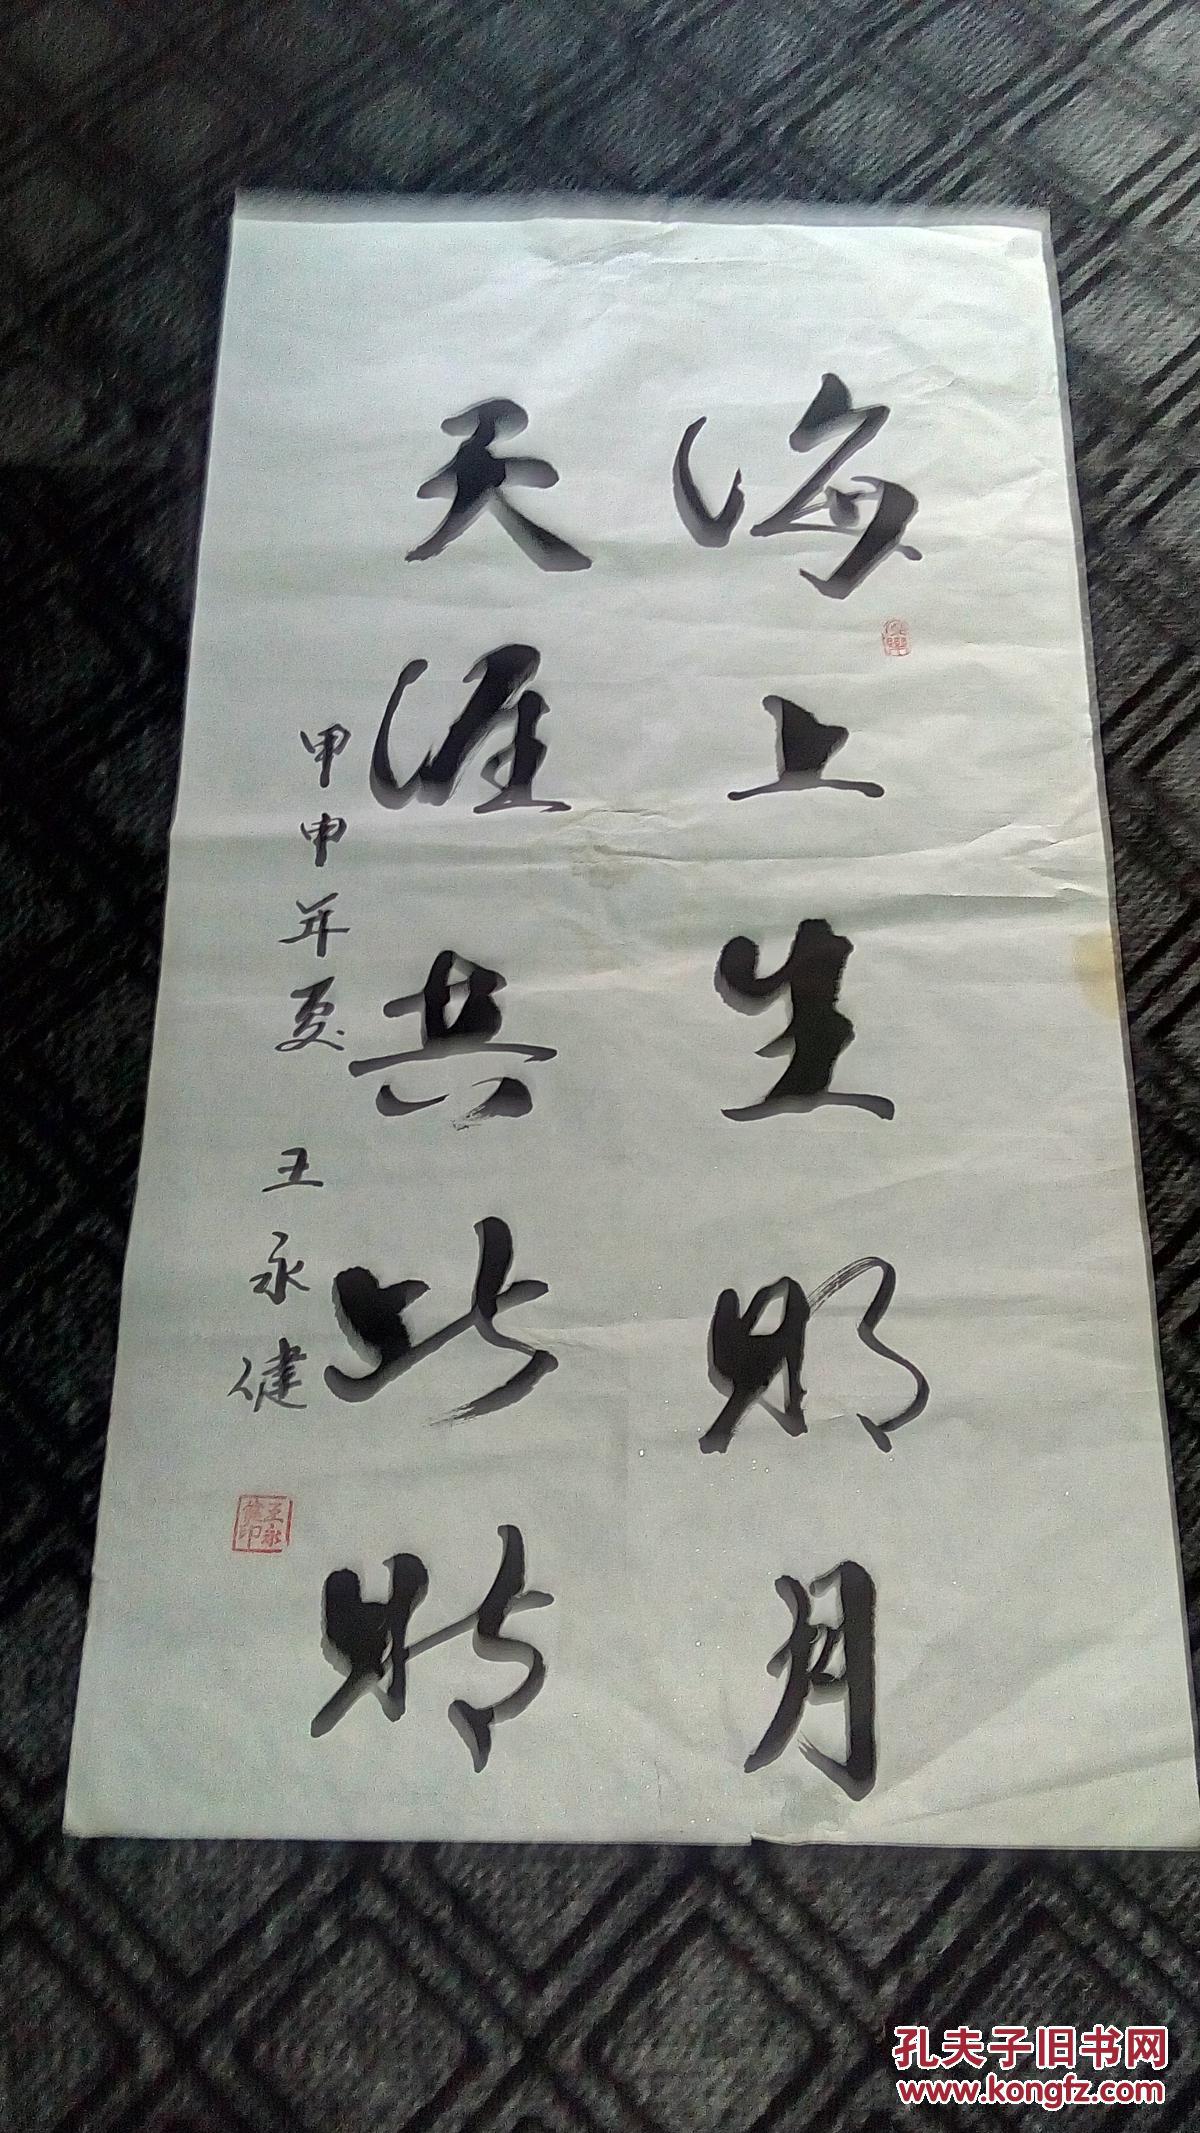 海上生明月
天涯共此时
甲申年夏
王永健
王永健印
孔夫子旧书网
www.kongfz.com